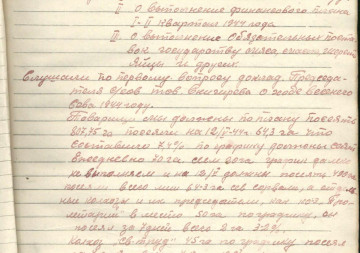 II о выполнение финансового плана
I-II квартал 1944 года
III о выполнение обязательных поста
вок государству мяса, молока, шерсти
яйца и других
Слушали по первому вопросу доклад Председа-
теля с/сов тов. о ходе весеннего
сева 1944 году.
Товарищи мы должны по плану посеять
807,75 га посеяли на 10/V-44 г. 59,3 га что
составило 7,4% по графику должны сеять
ежедневно 70 га сеем 20 га график далеко
не выполняем и на 10/V должны посеять 490 га
посеяли всего мы 59-3 га сев сорвали, а отдель
ные колхозы и их председатели, как кол. Про-
летарий в место 50 га по графику, он
посеял за 7 дней всего 2 га
колхоз "Св. труд" 45 га по графику посеял